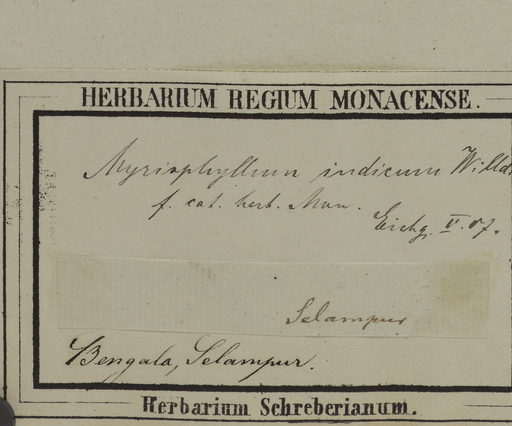 HERBARIUM REGIUM MONACENSE.
Myriophyllum indicum Willd.
f. cat. herb. Mon.
Eichg. V. 07.
Selampur
Bengala, Selampur.
Herbarium Schreberianum.